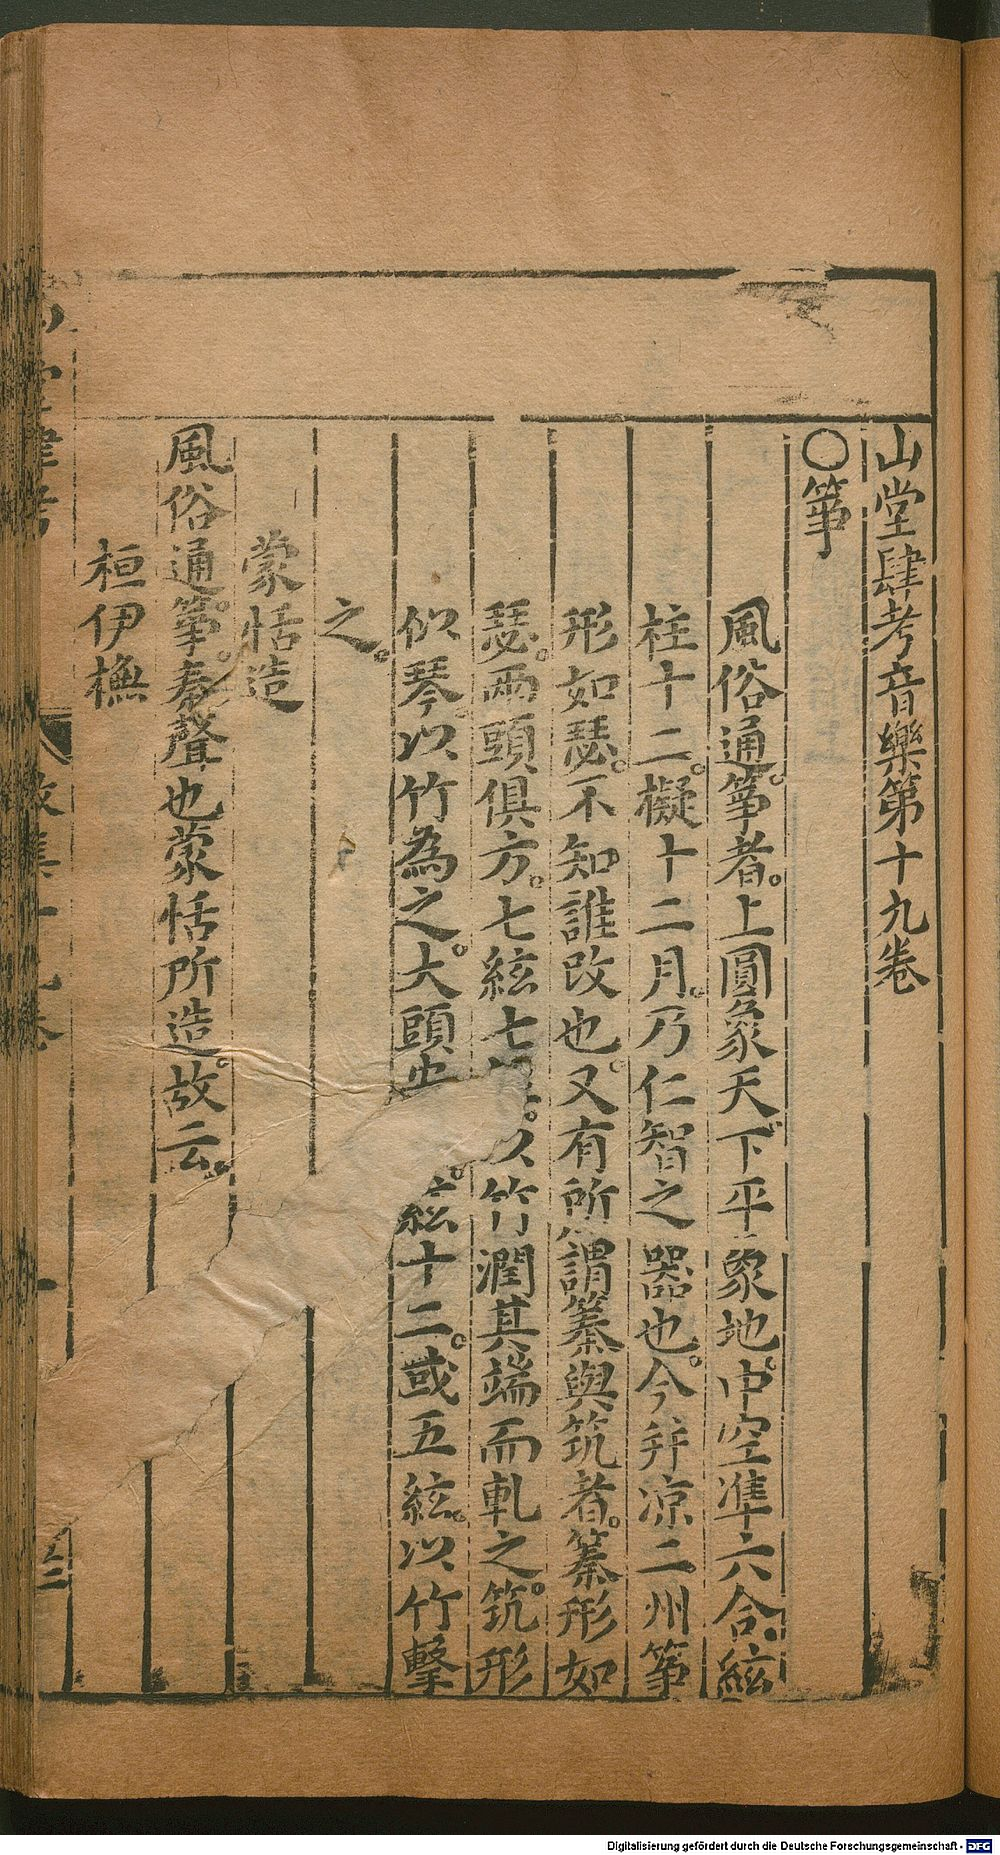 山堂肆考音樂第十九卷
○箏
風俗通。箏者。上圓象天。下平象地。中空準六合。絃
柱十二。擬十二月。乃仁智之器也。今并涼二州箏
形如瑟。不知誰改也。又有所謂𥱧與筑者。𥱧形如
瑟。兩頭俱方。七絃七。以竹潤其端而軋之。筑形
似琴。以竹為之。大頭絃十二。或五絃。以竹擊
之。
蒙恬造
風俗通。箏。秦聲也。蒙恬所造。故云。
桓伊橅
Digitalisierung gefördert durch die Deutsche Forschungsgemeinschaft - DFG